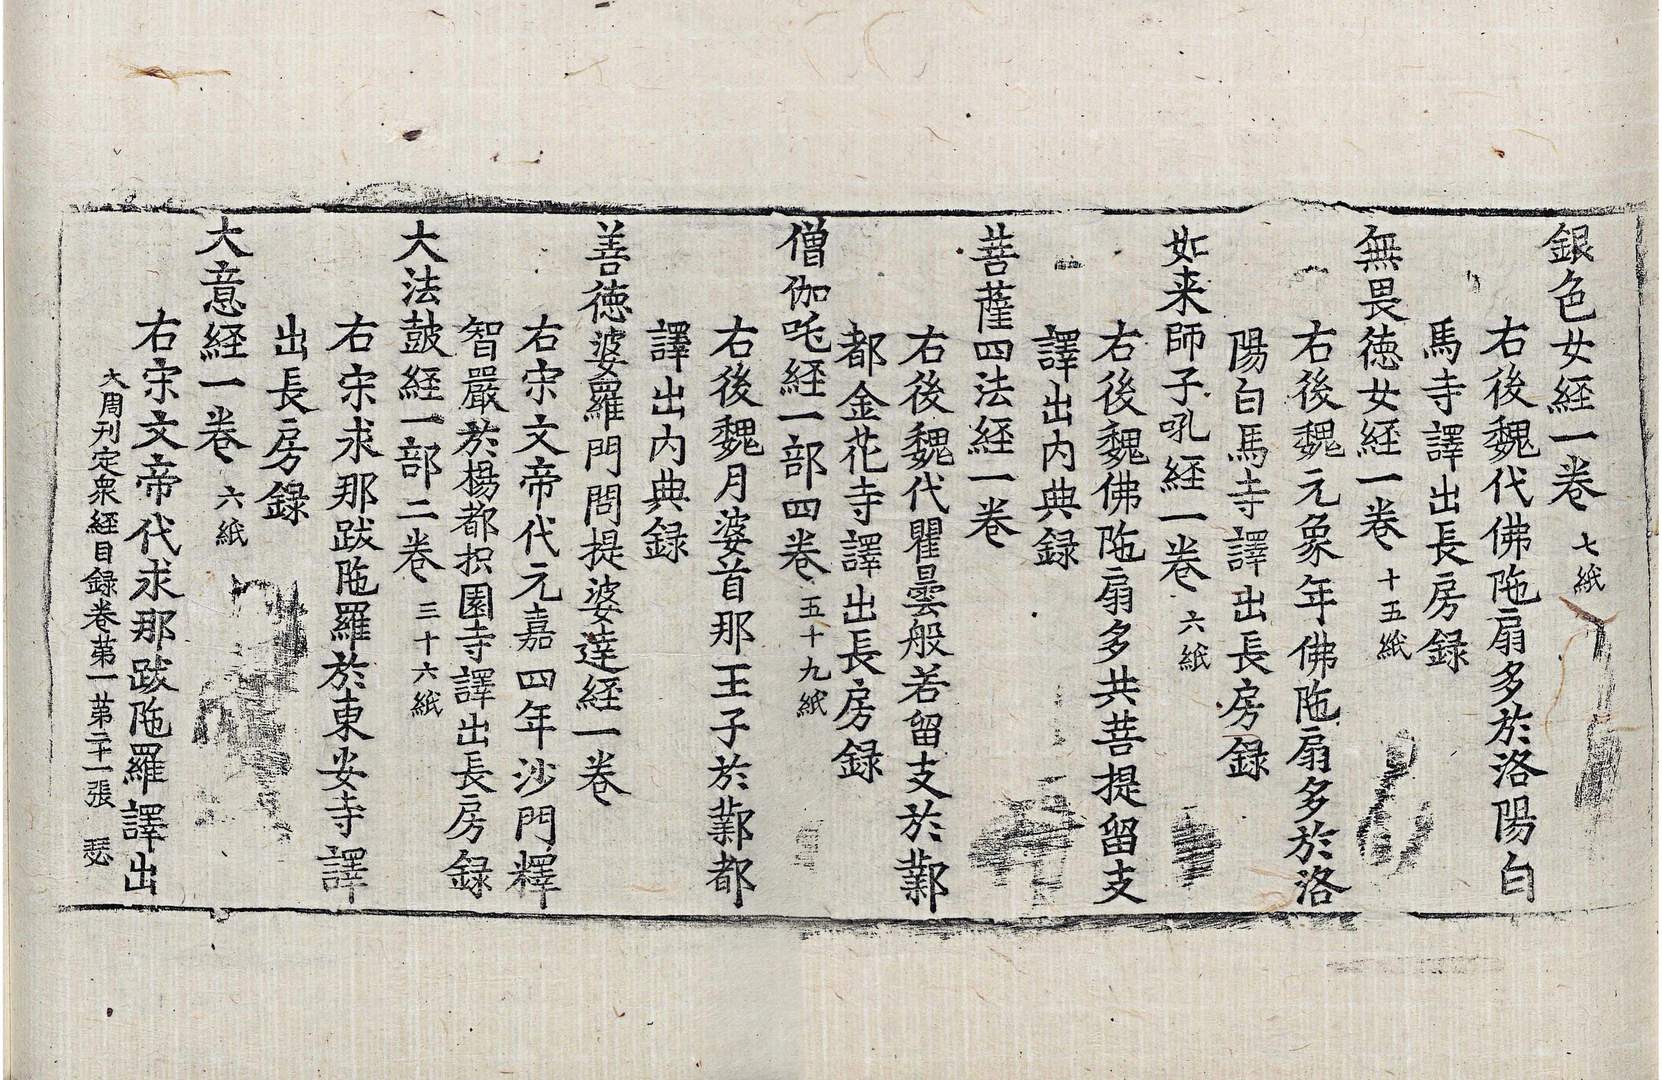 銀色女経一卷 七紙
右後魏代佛陁扇多於洛陽白
馬寺譯出長房録
無畏徳女経一卷 十五紙
右後魏元象年佛陁扇多於洛
陽白馬寺譯出長房録
如来師子吼経一卷 六紙
右後魏佛陁扇多共菩提留支
譯出内典録
菩薩四法経一卷
右後魏代瞿曇般若留支於鄴
都金花寺譯出長房録
僧伽吒経一部四卷 五十九紙
右後魏月婆首那王子於鄴都
譯出内典録
善徳婆羅門問提婆達経一卷
右宋文帝代元嘉四年沙門釋
智嚴於楊都枳園寺譯出長房録
大法鼓経一部二卷 三十六紙
右宋求那跋陁羅於東安寺譯
出長房録
大意経一卷 六紙
右宋文帝代求那跋陁羅譯出
大周刊定衆経目録卷苐一 苐二十一張 瑟